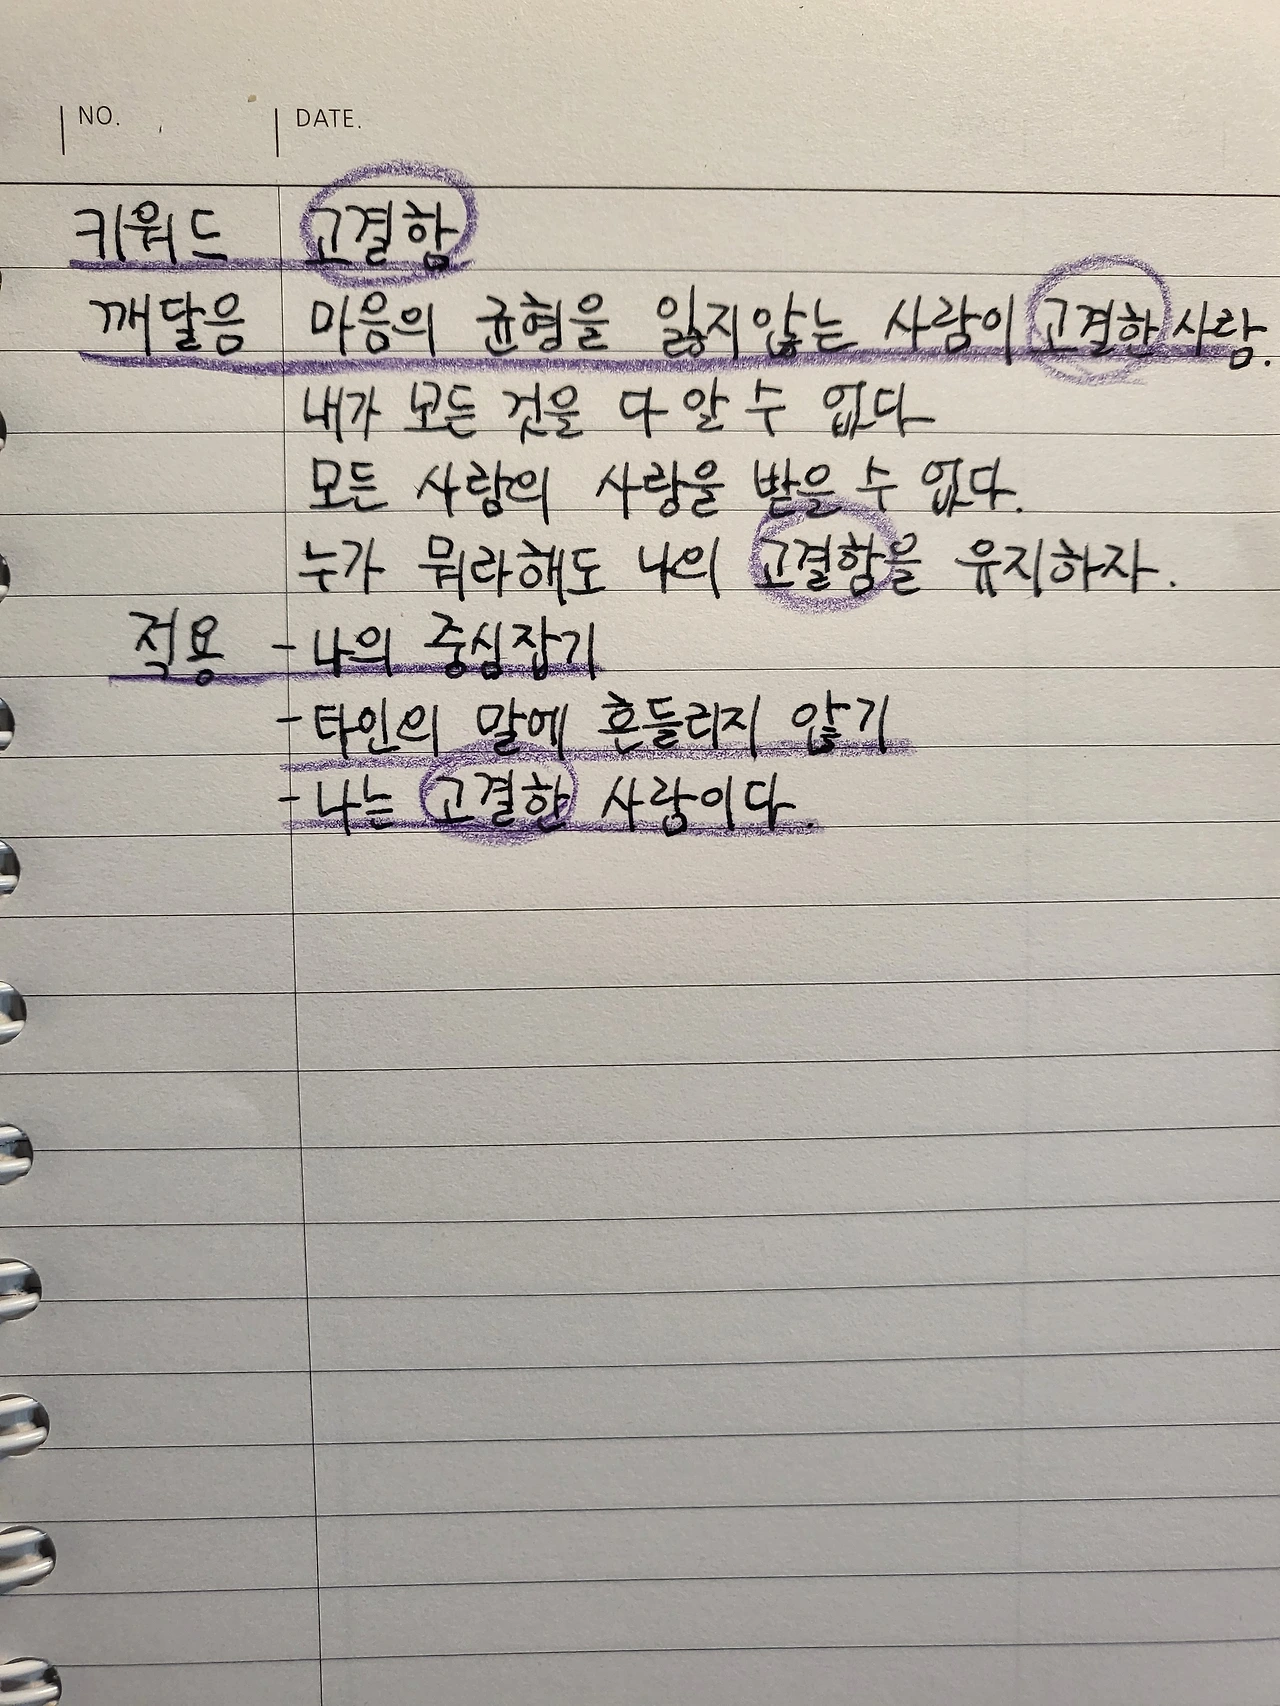 NO. DATE.
키워드 고결함
깨달음 마음의 균형을 잃지않는 사람이 고결한 사람.
내가 모든 것을 다 알 수 없다
모든 사람의 사랑을 받을 수 없다.
누가 뭐라해도 나의 고결함을 유지하자.
적용 - 나의 중심잡기
- 타인의 말에 흔들리지 않기
- 나는 고결한 사람이다.